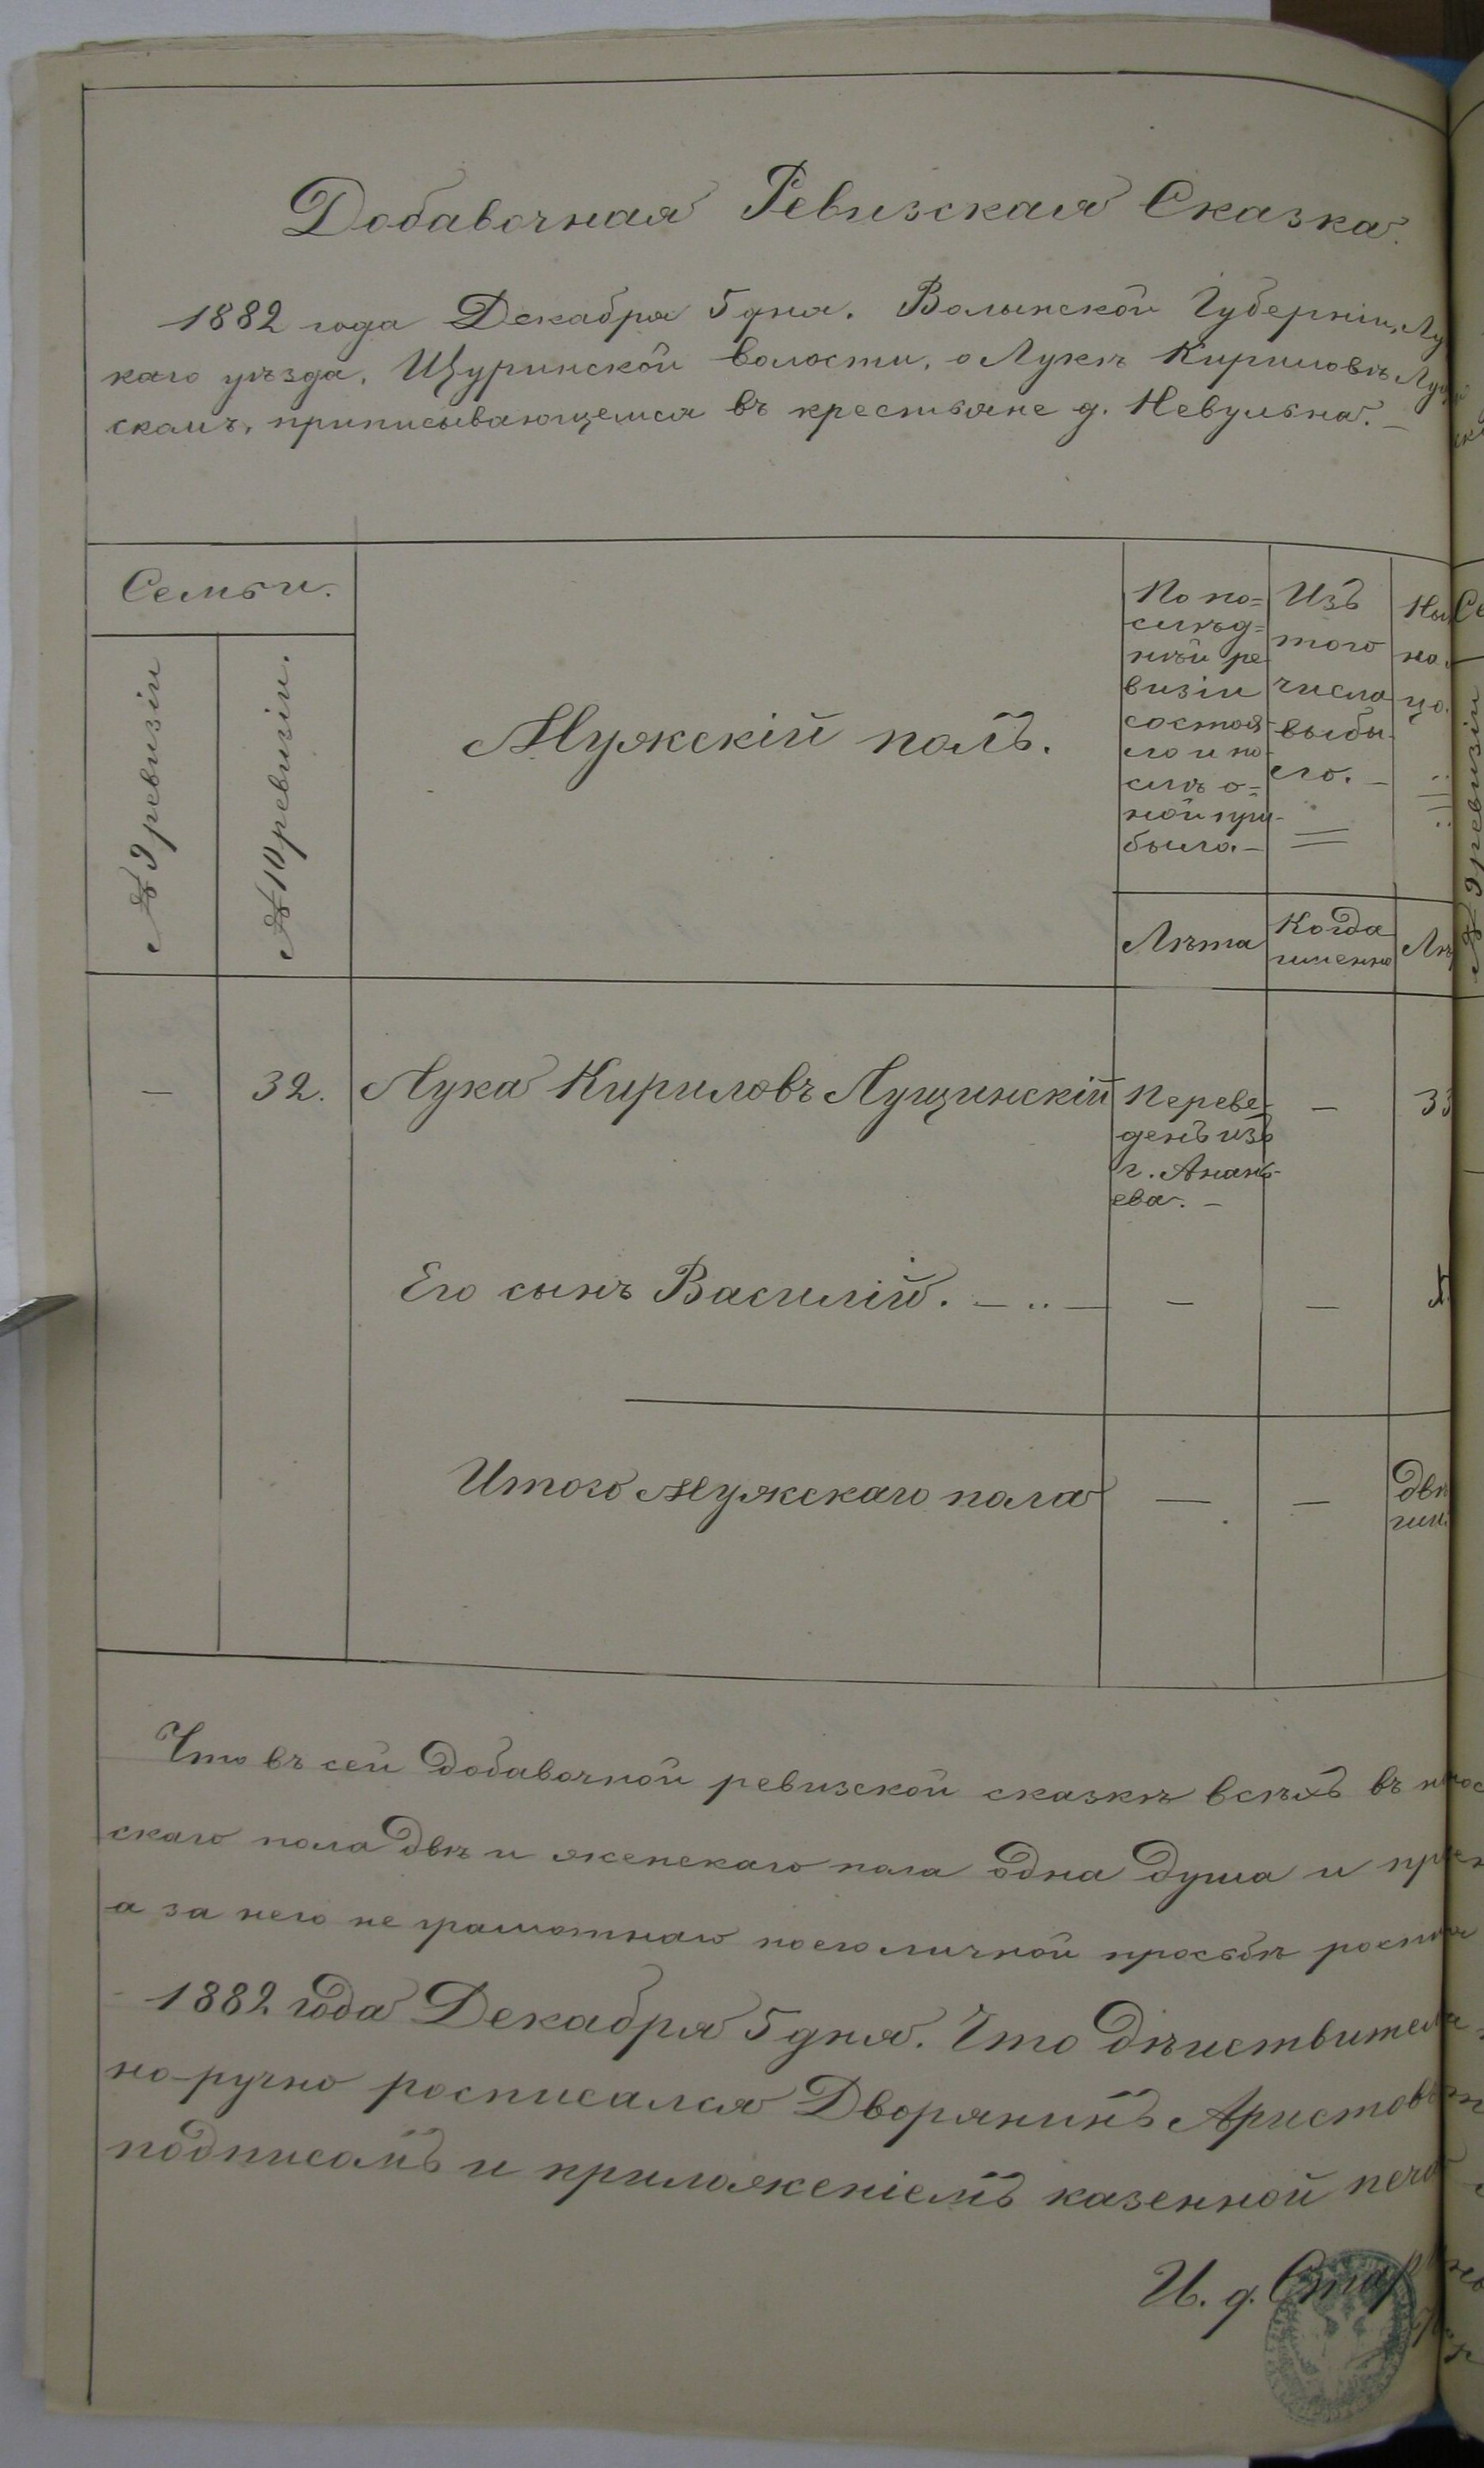 Добавочная Ревизская Сказка.
1882 года Декабря 5 дня. Волынской Губерніи, Лу
каго уѣзда, Щуринской волости, о Лукѣ Кириловѣ Лущин
скомъ, приписывающемся въ крестьяне д. Невульна. —
Семьи.
№ 9 ревизіи
№ 10 ревизіи.
Мужскій полъ.
По по=
слѣд=
нѣй ре
визіи
состоя
ло и по
слѣ о=
ной при-
было. —
Изъ
того
числа
выбы-
ло. —
Ны
на.
цо.
Лѣта
Когда
именно
Лѣ
— 32. Лука Кириловъ Лущинскій
Переве-
денъ изъ
г. Анань-
ева. —
— 33
Его сынъ Василій. — .. — — —
Итого мужскаго пола — —
Двѣ
Что въ сей добавочной ревизской сказкѣ всѣхъ въ
скаго пола двѣ и женскаго пола одна душа и
а за него не грамотнаго по его личной просьбѣ роспи
1882 года Декабря 5 дня. Что дѣйствитель
но-ручно росписался Дворянинъ Аристов
подписомъ и приложеніемъ казенной печа
И. д. Стар
№ 9 ревизіи